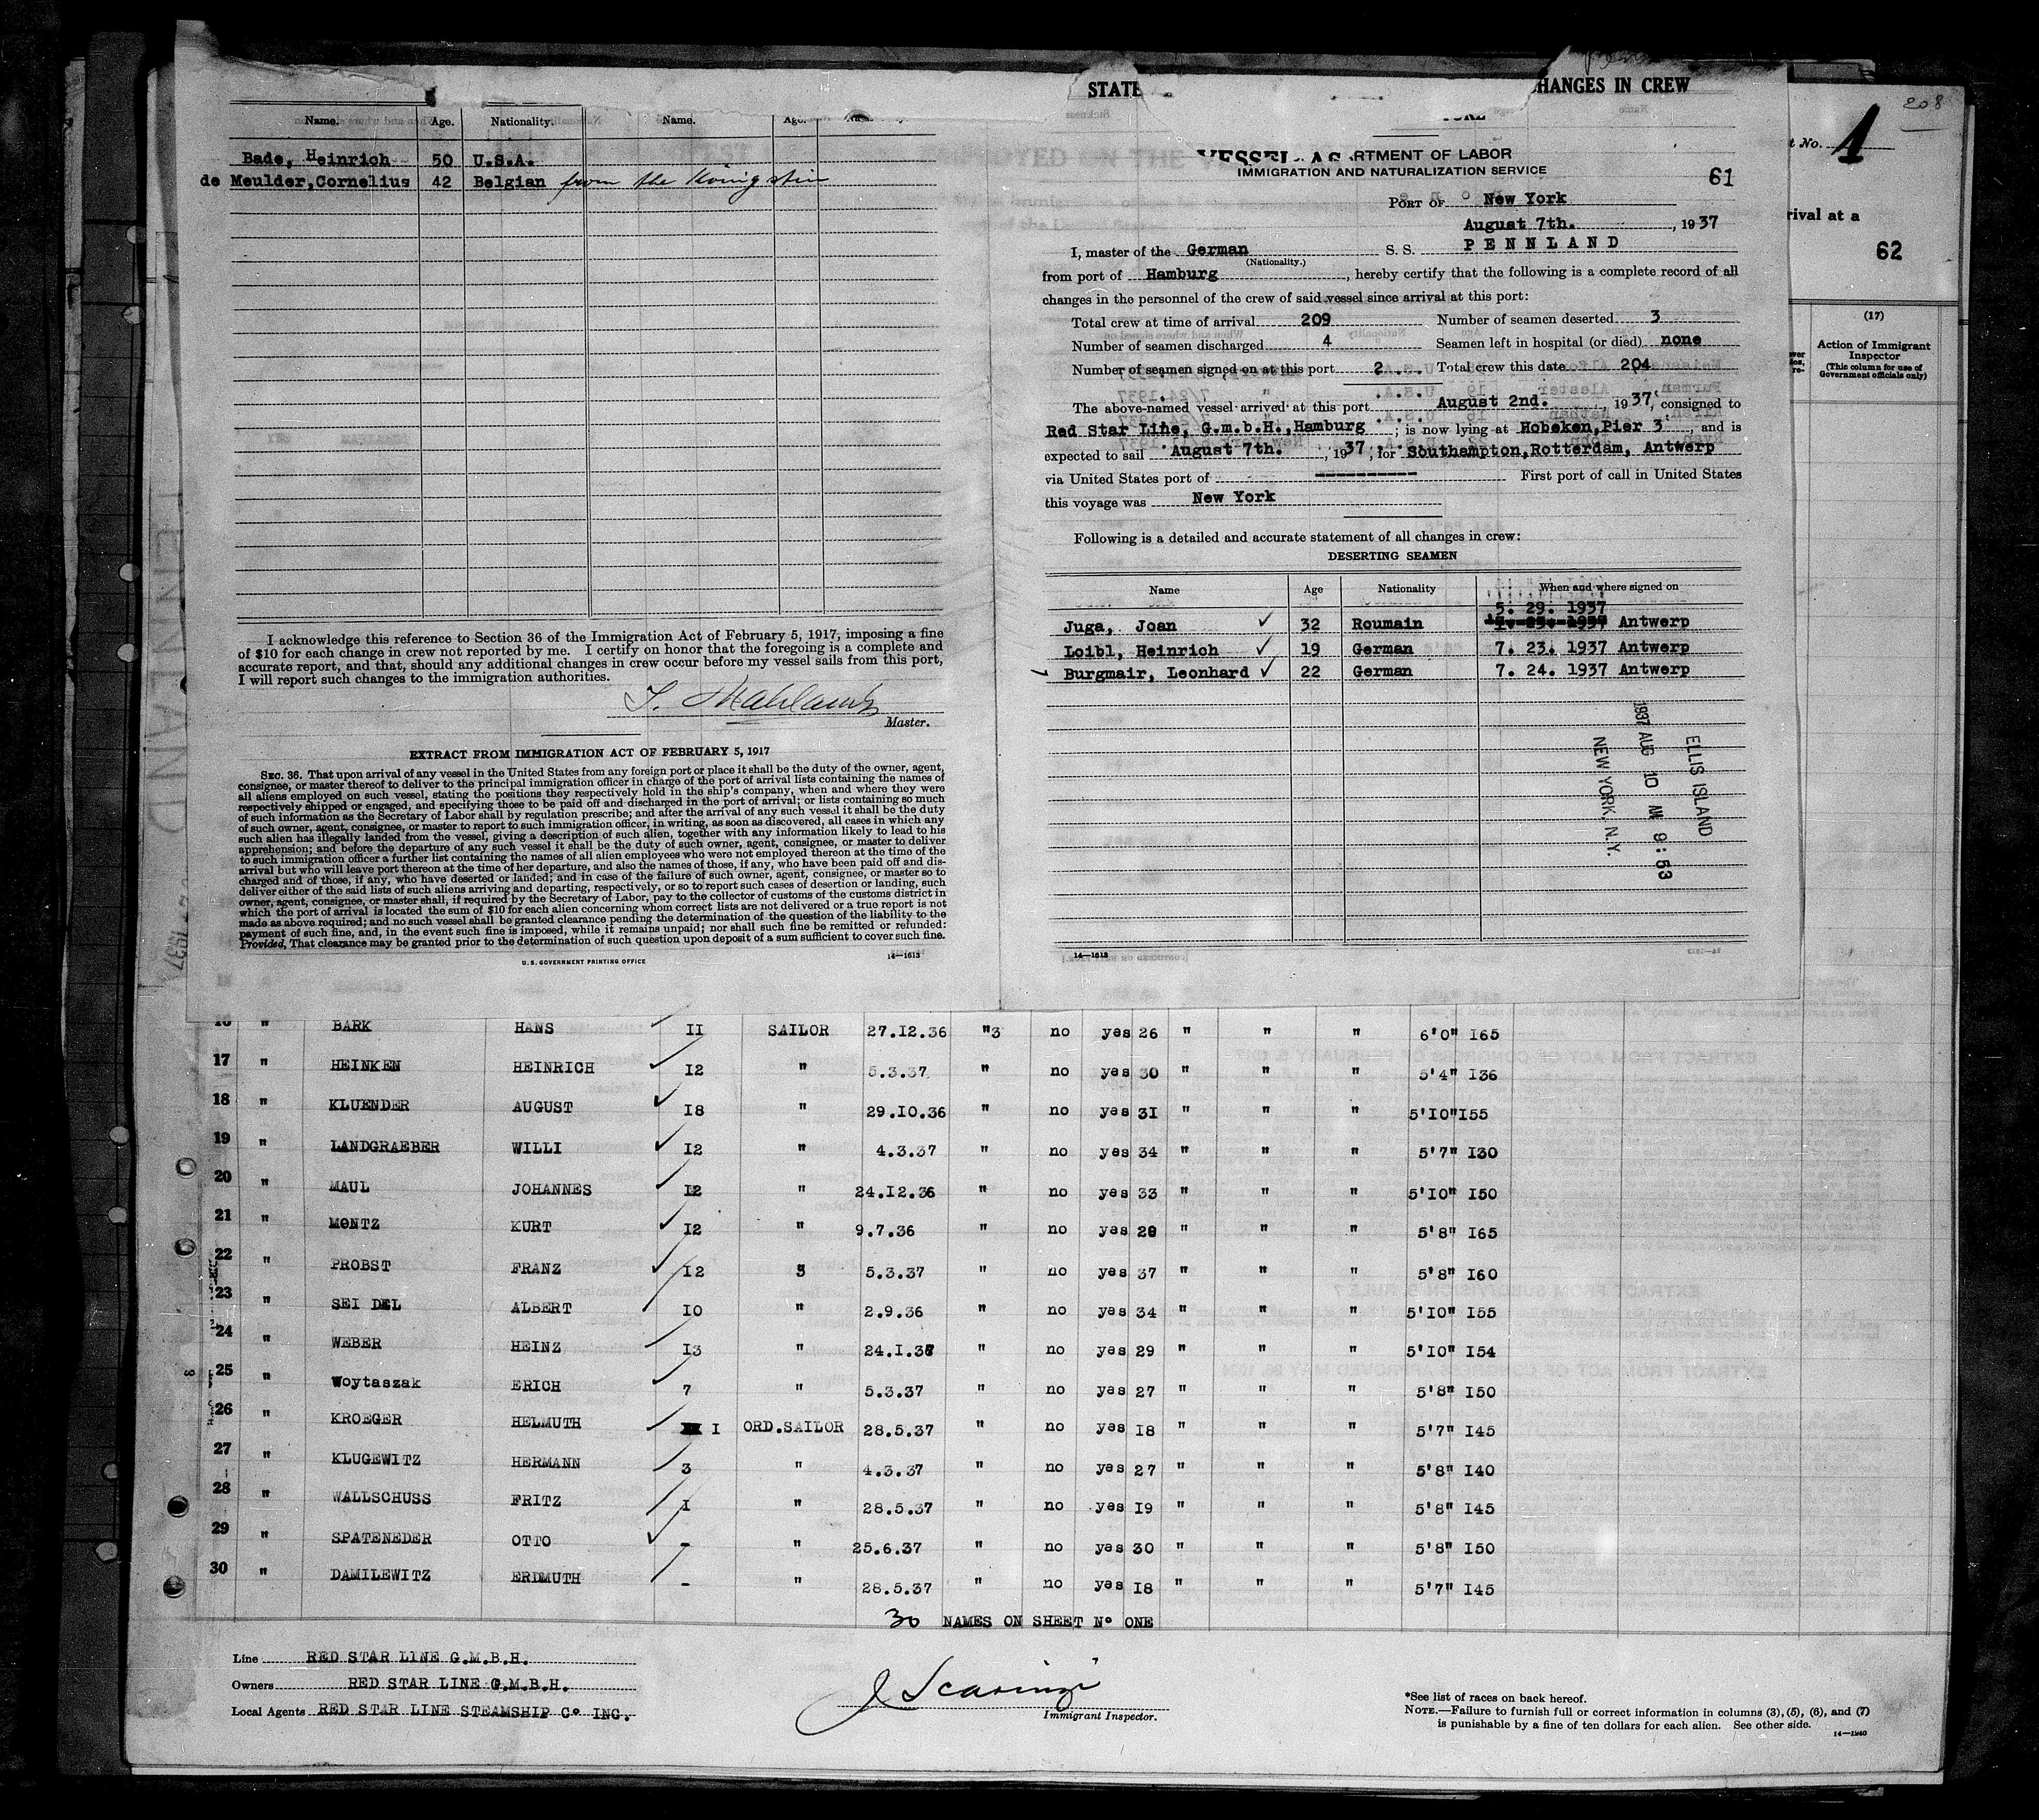 STATE
HANGES IN CREW
208
Name. Age. Nationality. Name. Age.
Bade, Heinrich 50 U.S.A.
de Meulder, Cornelius 42 Belgian from the Königstein
I acknowledge this reference to Section 36 of the Immigration Act of February 5, 1917, imposing a fine
of $10 for each change in crew not reported by me. I certify on honor that the foregoing is a complete and
accurate report, and that, should any additional changes in crew occur before my vessel sails from this port,
I will report such changes to the immigration authorities.
Master.
EXTRACT FROM IMMIGRATION ACT OF FEBRUARY 5, 1917
SEC. 36. That upon arrival of any vessel in the United States from any foreign port or place it shall be the duty of the owner, agent,
consignee, or master thereof to deliver to the principal immigration officer in charge of the port of arrival lists containing the names of
all aliens employed on such vessel, stating the positions they respectively hold in the ship's company, when and where they were
respectively shipped or engaged, and specifying those to be paid off and discharged in the port of arrival; or lists containing so much
of such information as the Secretary of Labor shall by regulation prescribe; and after the arrival of any such vessel it shall be the duty
of such owner, agent, consignee, or master to report to such immigration officer, in writing, as soon as discovered, all cases in which any
such alien has illegally landed from the vessel, giving a description of such alien, together with any information likely to lead to his
apprehension; and before the departure of any such vessel it shall be the duty of such owner, agent, consignee, or master to deliver
to such immigration officer a further list containing the names of all alien employees who were not employed thereon at the time of the
arrival but who will leave port thereon at the time of her departure, and also the names of those, if any, who have been paid off and dis-
charged and of those, if any, who have deserted or landed; and in case of the failure of such owner, agent, consignee, or master so to
deliver either of the said lists of such aliens arriving and departing, respectively, or so to report such cases of desertion or landing, such
owner, agent, consignee, or master shall, if required by the Secretary of Labor, pay to the collector of customs of the customs district in
which the port of arrival is located the sum of $10 for each alien concerning whom correct lists are not delivered or a true report is not
made as above required; and no such vessel shall be granted clearance pending the determination of the question of the liability to the
payment of such fine, and, in the event such fine is imposed, while it remains unpaid; nor shall such fine be remitted or refunded:
Provided, That clearance may be granted prior to the determination of such question upon deposit of a sum sufficient to cover such fine.
U. S. GOVERNMENT PRINTING OFFICE 14—1613
RTMENT OF LABOR
IMMIGRATION AND NATURALIZATION SERVICE
61
PORT OF New York
August 7th., 1937
I, master of the German S. S. PENNLAND
(Nationality.)
from port of Hamburg, hereby certify that the following is a complete record of all
changes in the personnel of the crew of said vessel since arrival at this port:
Total crew at time of arrival 209 Number of seamen deserted 3
Number of seamen discharged 4 Seamen left in hospital (or died) none
Number of seamen signed on at this port 2 Total crew this date 204
The above-named vessel arrived at this port August 2nd., 1937, consigned to
Red Star Line, G.m.b.H., Hamburg; is now lying at Hoboken, Pier 3, and is
expected to sail August 7th., 1937, for Southampton, Rotterdam, Antwerp
via United States port of ---------- First port of call in United States
this voyage was New York
Following is a detailed and accurate statement of all changes in crew:
DESERTING SEAMEN
Name Age Nationality When and where signed on
5. 29. 1937
Juga, Joan ✓ 32 Roumain Antwerp
Loibl, Heinrich ✓ 19 German 7. 23. 1937 Antwerp
Burgmair, Leonhard ✓ 22 German 7. 24. 1937 Antwerp
ELLIS ISLAND
1937 AUG 10 AM 9:53
NEW YORK, N.Y.
14—1613
t No. 1
rival at a
62
(17)
Action of Immigrant
Inspector
(This column for use of
Government officials only)
16 " BARK HANS 11 SAILOR 27.12.36 "3 no yes 26 " " " 6'0" 165
17 " HEINKEN HEINRICH 12 " 5.3.37 " no yes 30 " " " 5'4" 136
18 " KLUENDER AUGUST 18 " 29.10.36 " no yes 31 " " " 5'10" 155
19 " LANDGRAEBER WILLI 12 " 4.3.37 " no yes 34 " " " 5'7" 130
20 " MAUL JOHANNES 12 " 24.12.36 " no yes 33 " " " 5'10" 150
21 " MONTZ KURT 12 " 9.7.36 " no yes 28 " " " 5'8" 165
22 " PROBST FRANZ 12 " 5.3.37 " no yes 37 " " " 5'8" 160
23 " SEIDEL ALBERT 10 " 2.9.36 " no yes 34 " " " 5'10" 155
24 " WEBER HEINZ 13 " 24.1.37 " no yes 29 " " " 5'10" 154
25 " Woytaszak ERICH 7 " 5.3.37 " no yes 27 " " " 5'8" 150
26 " KROEGER HELMUTH 1 ORD.SAILOR 28.5.37 " no yes 18 " " " 5'7" 145
27 " KLUGEWITZ HERMANN 3 " 4.3.37 " no yes 27 " " " 5'8" 140
28 " WALLSCHUSS FRITZ 1 " 28.5.37 " no yes 19 " " " 5'8" 145
29 " SPATENEDER OTTO - " 25.6.37 " no yes 30 " " " 5'8" 150
30 " DAMILEWITZ ERDMUTH - " 28.5.37 " no yes 18 " " " 5'7" 145
30 NAMES ON SHEET No ONE
Line RED STAR LINE G.M.B.H.
Owners RED STAR LINE G.M.B.H.
Local Agents RED STAR LINE STEAMSHIP Co INC.
J Scaringi
Immigrant Inspector.
*See list of races on back hereof.
NOTE.—Failure to furnish full or correct information in columns (3), (5), (6), and (7)
is punishable by a fine of ten dollars for each alien. See other side.
14—1240